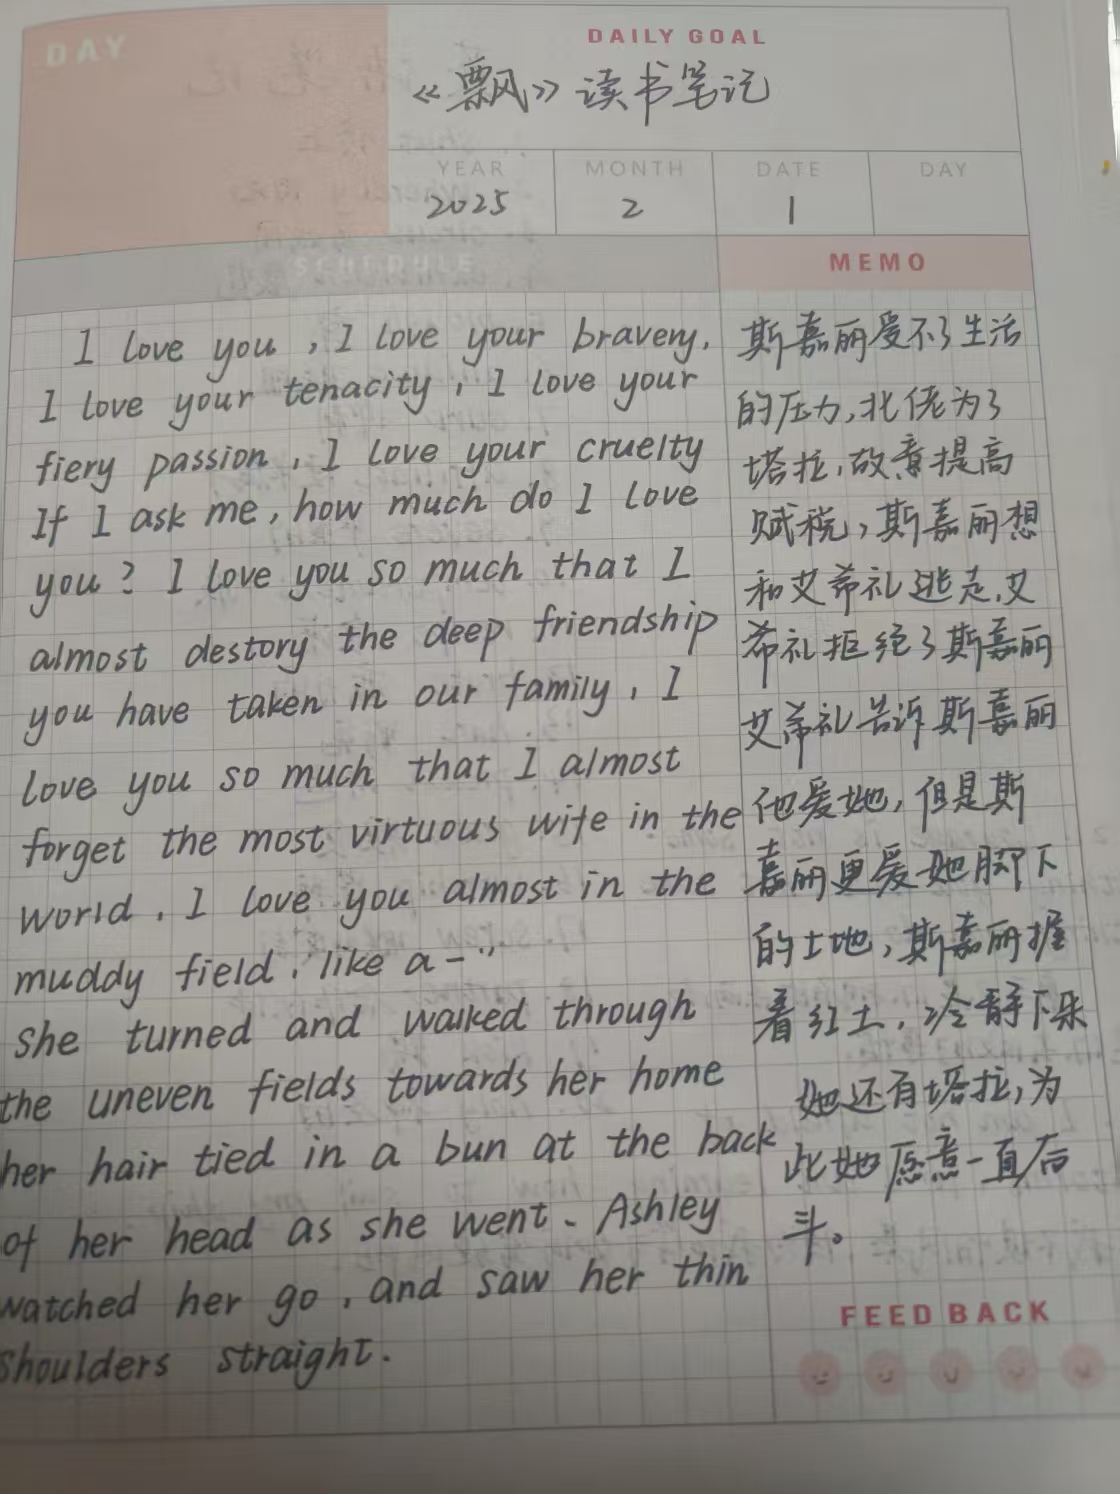 DAY
DAILY GOAL
《飘风》读书笔记
YEAR
MONTH
DATE
DAY
2025
2
1
SCHEDULE
I love you, I love your bravery,
I love your tenacity, I love your
fiery passion, I love your cruelty
If I ask me, how much do I love
you? I love you so much that I
almost destory the deep friendship
you have taken in our family, I
love you so much that I almost
forget the most virtuous wife in the
world, I love you almost in the
muddy field, like a —"
she turned and walked through
the uneven fields towards her home
her hair tied in a bun at the back
of her head as she went. Ashley
watched her go, and saw her thin
shoulders straight.
MEMO
斯嘉丽受不了生活
的压力,北佬为了
塔拉,故意提高
赋税,斯嘉丽想
和艾希礼逃走,艾
希礼拒绝了斯嘉丽
艾希礼告诉斯嘉丽
他爱她,但是斯
嘉丽更爱她脚下
的土地,斯嘉丽握
着红土,冷静下来
她还有塔拉,为
此她愿意一直奋
斗。
FEED BACK